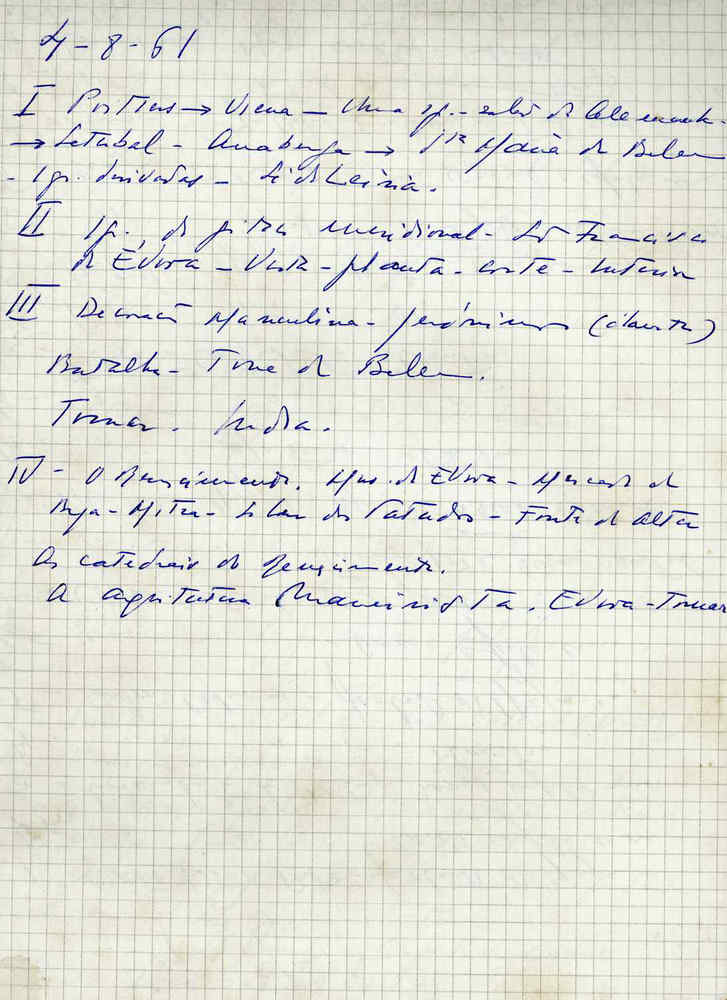 4-8-61
I Portius → Viena - Uma ig. - salão de Alemanh.
→ Setubal - Anaberga → Stª Maria de Belem
- Ig. derivadas - Sé de Leiria.
II Ig. de pedra meridional - São Francisco
de Évora - Vista - planta - corte - interior
III Decoração Masculina - Jerónimos (claustro)
Batalha - Torre de Belem.
Tomar. India.
IV - O Renascimento. Mus. de Évora - Museu de
Beja - Mitra - Solar dos - Fonte de Alter
As catedrais do Renascimento.
A arquitetura Maneirista. Evora - Tomar